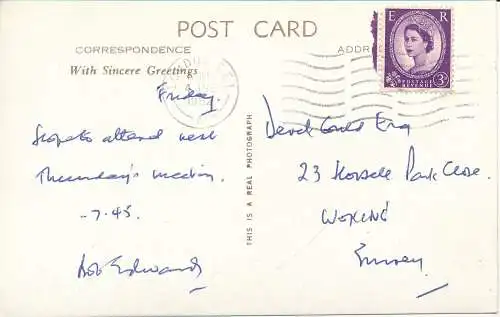 POST CARD
CORRESPONDENCE
ADDR
With Sincere Greetings
E R
POSTAGE
REVENUE
3D
Friday.
Hope to attend next
Thursday's meeting
-7.45.
Bob Edwards
THIS IS A REAL PHOTOGRAPH.
Derek Gould Esq
23 Horsell Park Close.
WOKING
Surrey